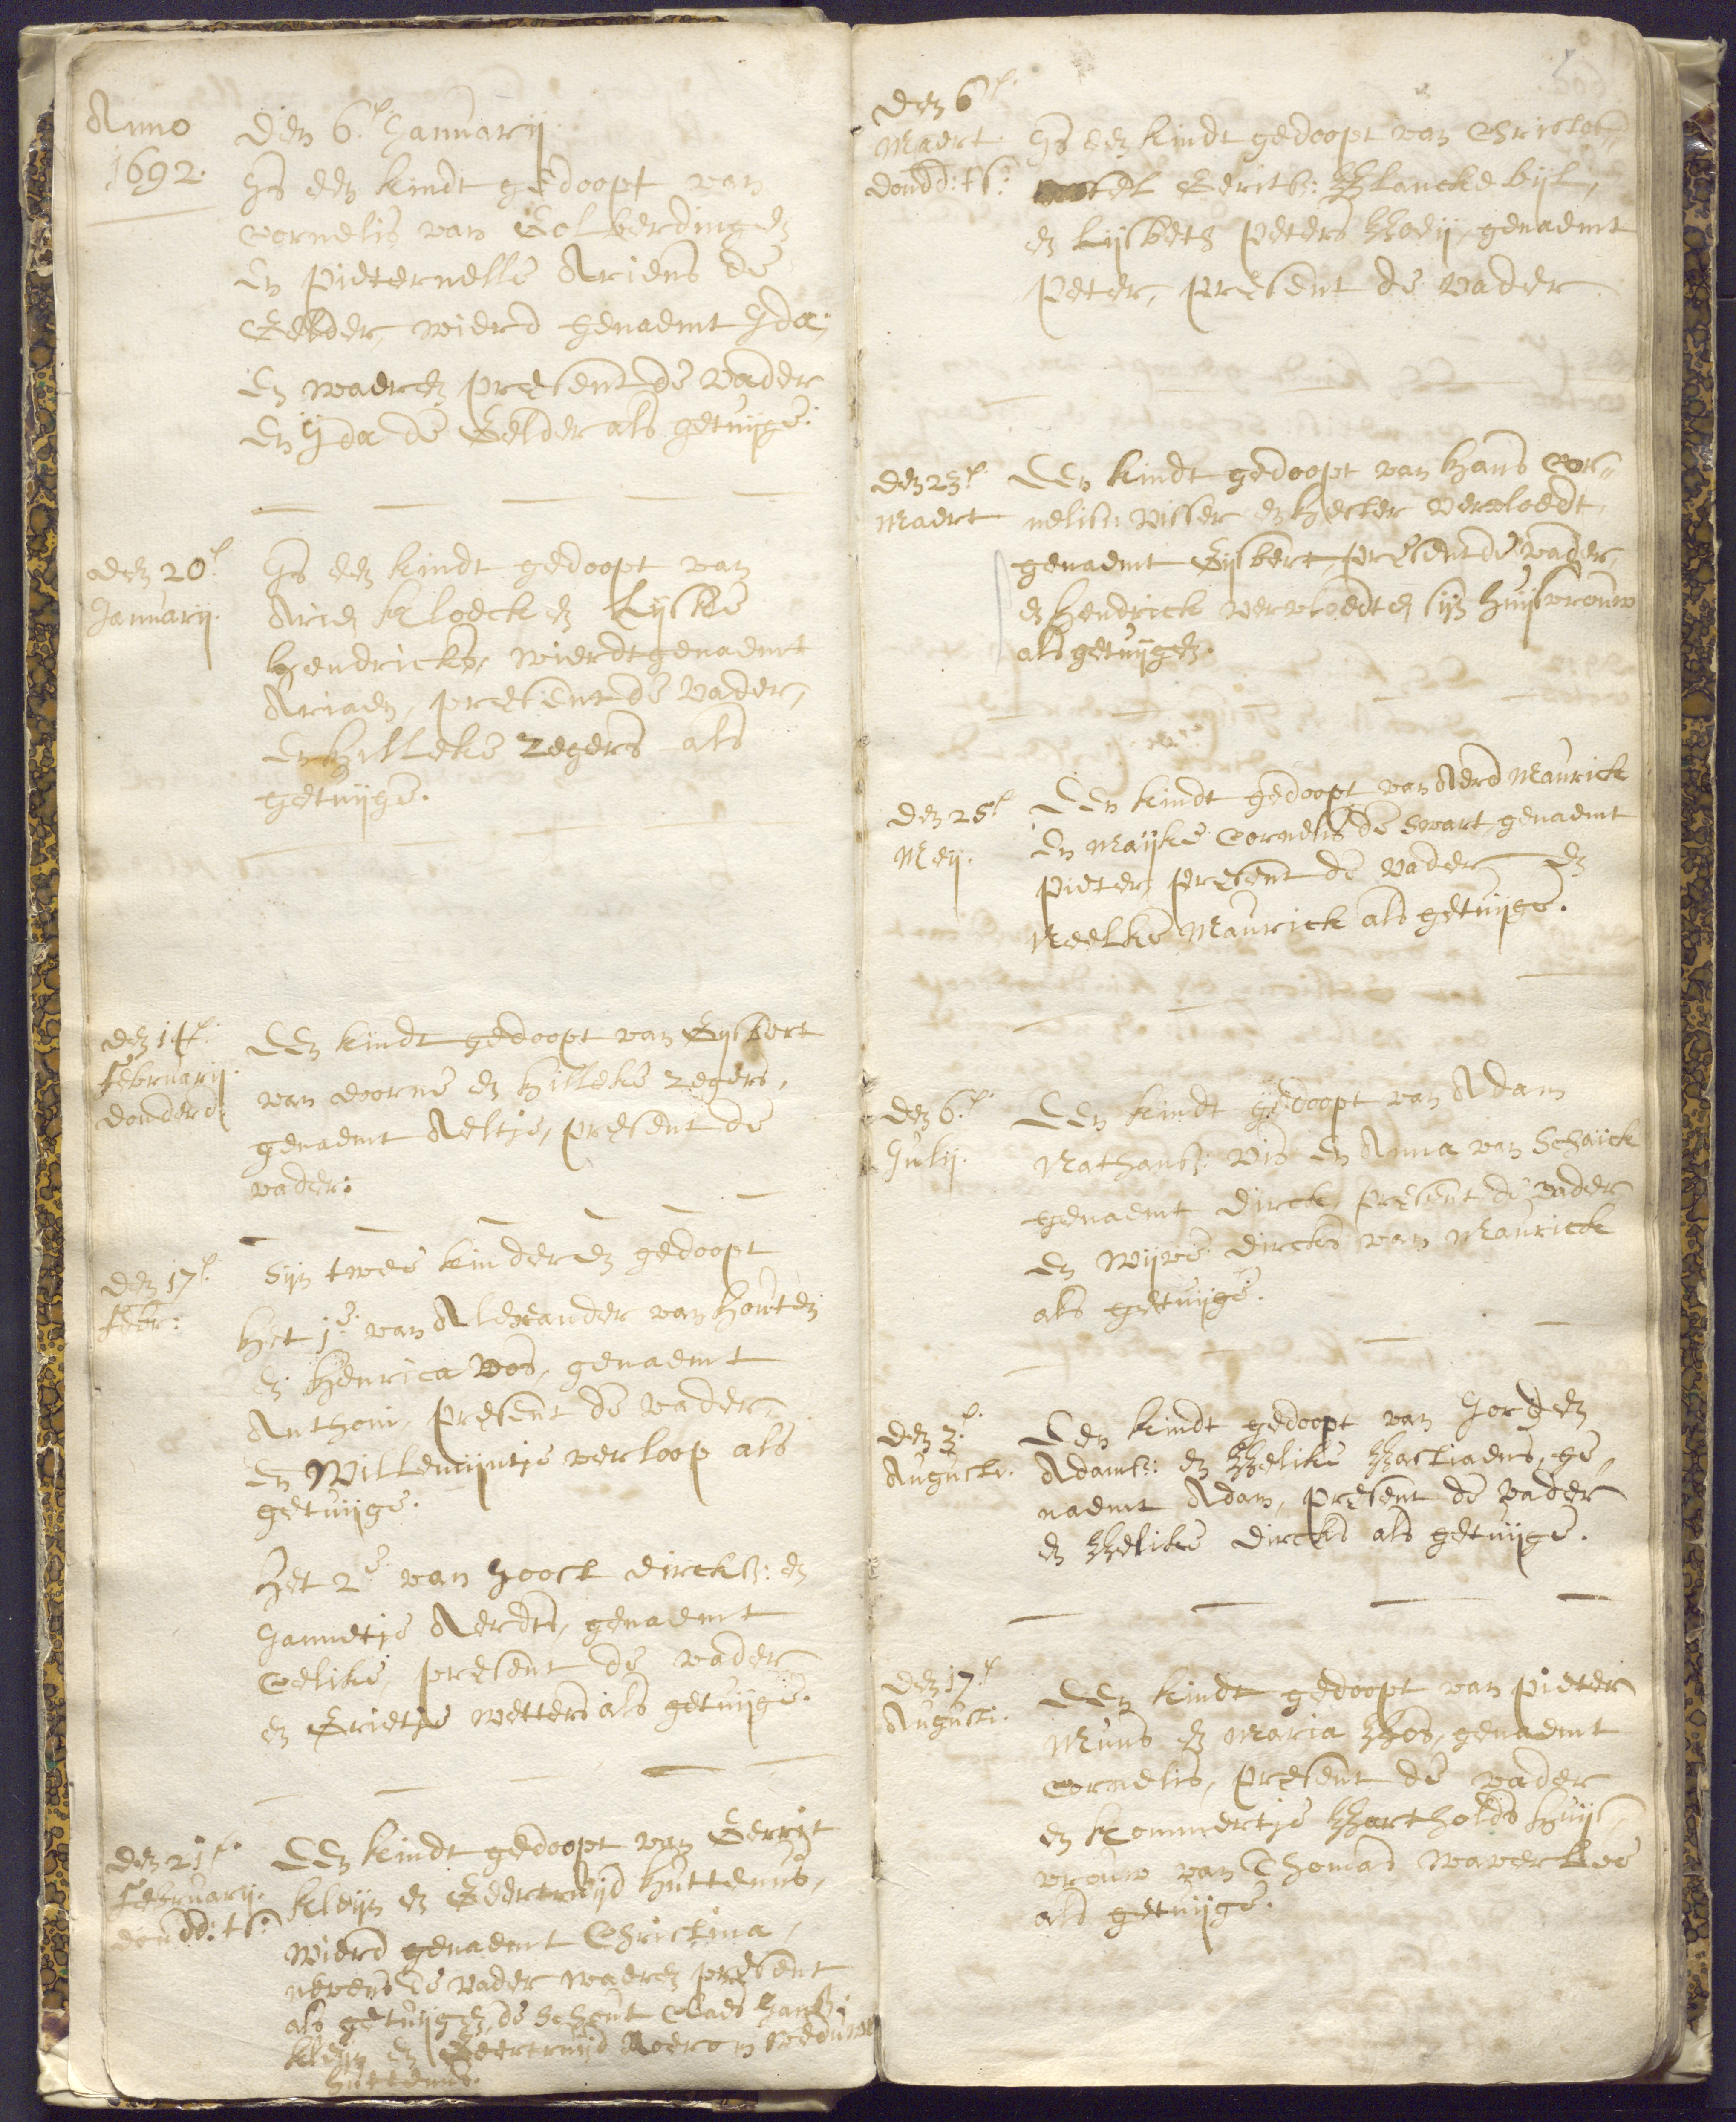 Anno
1692.
den 6.e Januarij
Is een kindt gedoopt van
Cornelis van Eolberdingen
en Pieternelle Ariens de
Gelder, wierd genaemt Ida,
en waeren present de vader
en Ida de Gelder als getuijge.
den 20.e
Januarij.
Is een kindt gedoopt van
Arien Kloeck en Lijske
Hendricks, wierdt genaemt
Ariaen, present de vader,
en Hilleke Zegers als
getuijge.
den 14.e
Februarij.
donderd:
Een kindt gedoopt van Gijsbert
van Doorne en Hilleke Zegers,
genaemt Aeltje, present de
vader.
den 17.e
Febr:
Sijn twee kinderen gedoopt
Het 1.e van Alexander van Houten
en Henrica Vos, genaemt
Anthoni, present de vader,
en Willemijntje Verloop als
getuijge.
Het 2.e van Joost Dircks: en
Jannetje Aerdts, genaemt
Celike, present de vader
en Grietje Wetters als getuijge.
den 21.e
Februarij.
dondd: ts:
Een kindt gedoopt van Gerrit
Kleijn en Geertruijd Huttenus,
wierd genaemt Christina,
nevens de vader waeren present
als getuijgen, de Schout Claes Jans:
Kleijn en Geertruijd Roers weduwe
Huttenus.
den 6.e
Maert.
dondd: ts:
Is een kindt gedoopt van Christof=
fel Gerits: Blanckebijl,
en Lijsbeth Peters Boeij, genaemt
Peter, present de vader
den 23.e
Maert
Een kindt gedoopt van Hans Cor=
nelis: Visser en Hester Vervloedt,
genaemt Gijsbert, present de vader,
en Hendrick Vervloedt en sijn huijsvrouw
als getuijgen.
den 25.e
Meij.
Een kindt gedoopt van Aerd Maurick
en Maijke Cornelis de Swart, genaemt
Pieter, present de vader en
Neelke Maurick als getuijge.
den 6.e
Julij.
Een kindt gedoopt van Adam
Nathans: Vis en Anna van Schaick
genaemt Dirck, present de vader
en Wijve Dircks van Maurick
als getuijge.
den 3.e
Augusti.
Een kindt gedoopt van Jorden
Adams: en Belike Bastiaens, ge=
naemt Adam, present de vader
en Belike Dircks als getuijge.
den 17.e
Augusti.
Een kindt gedoopt van Pieter
Muns en Maria Bos, genaemt
Cornelis, present de vader
en Kommertje Bartholds huijs=
vrouw van Thomas Waverloo
als getuijge.